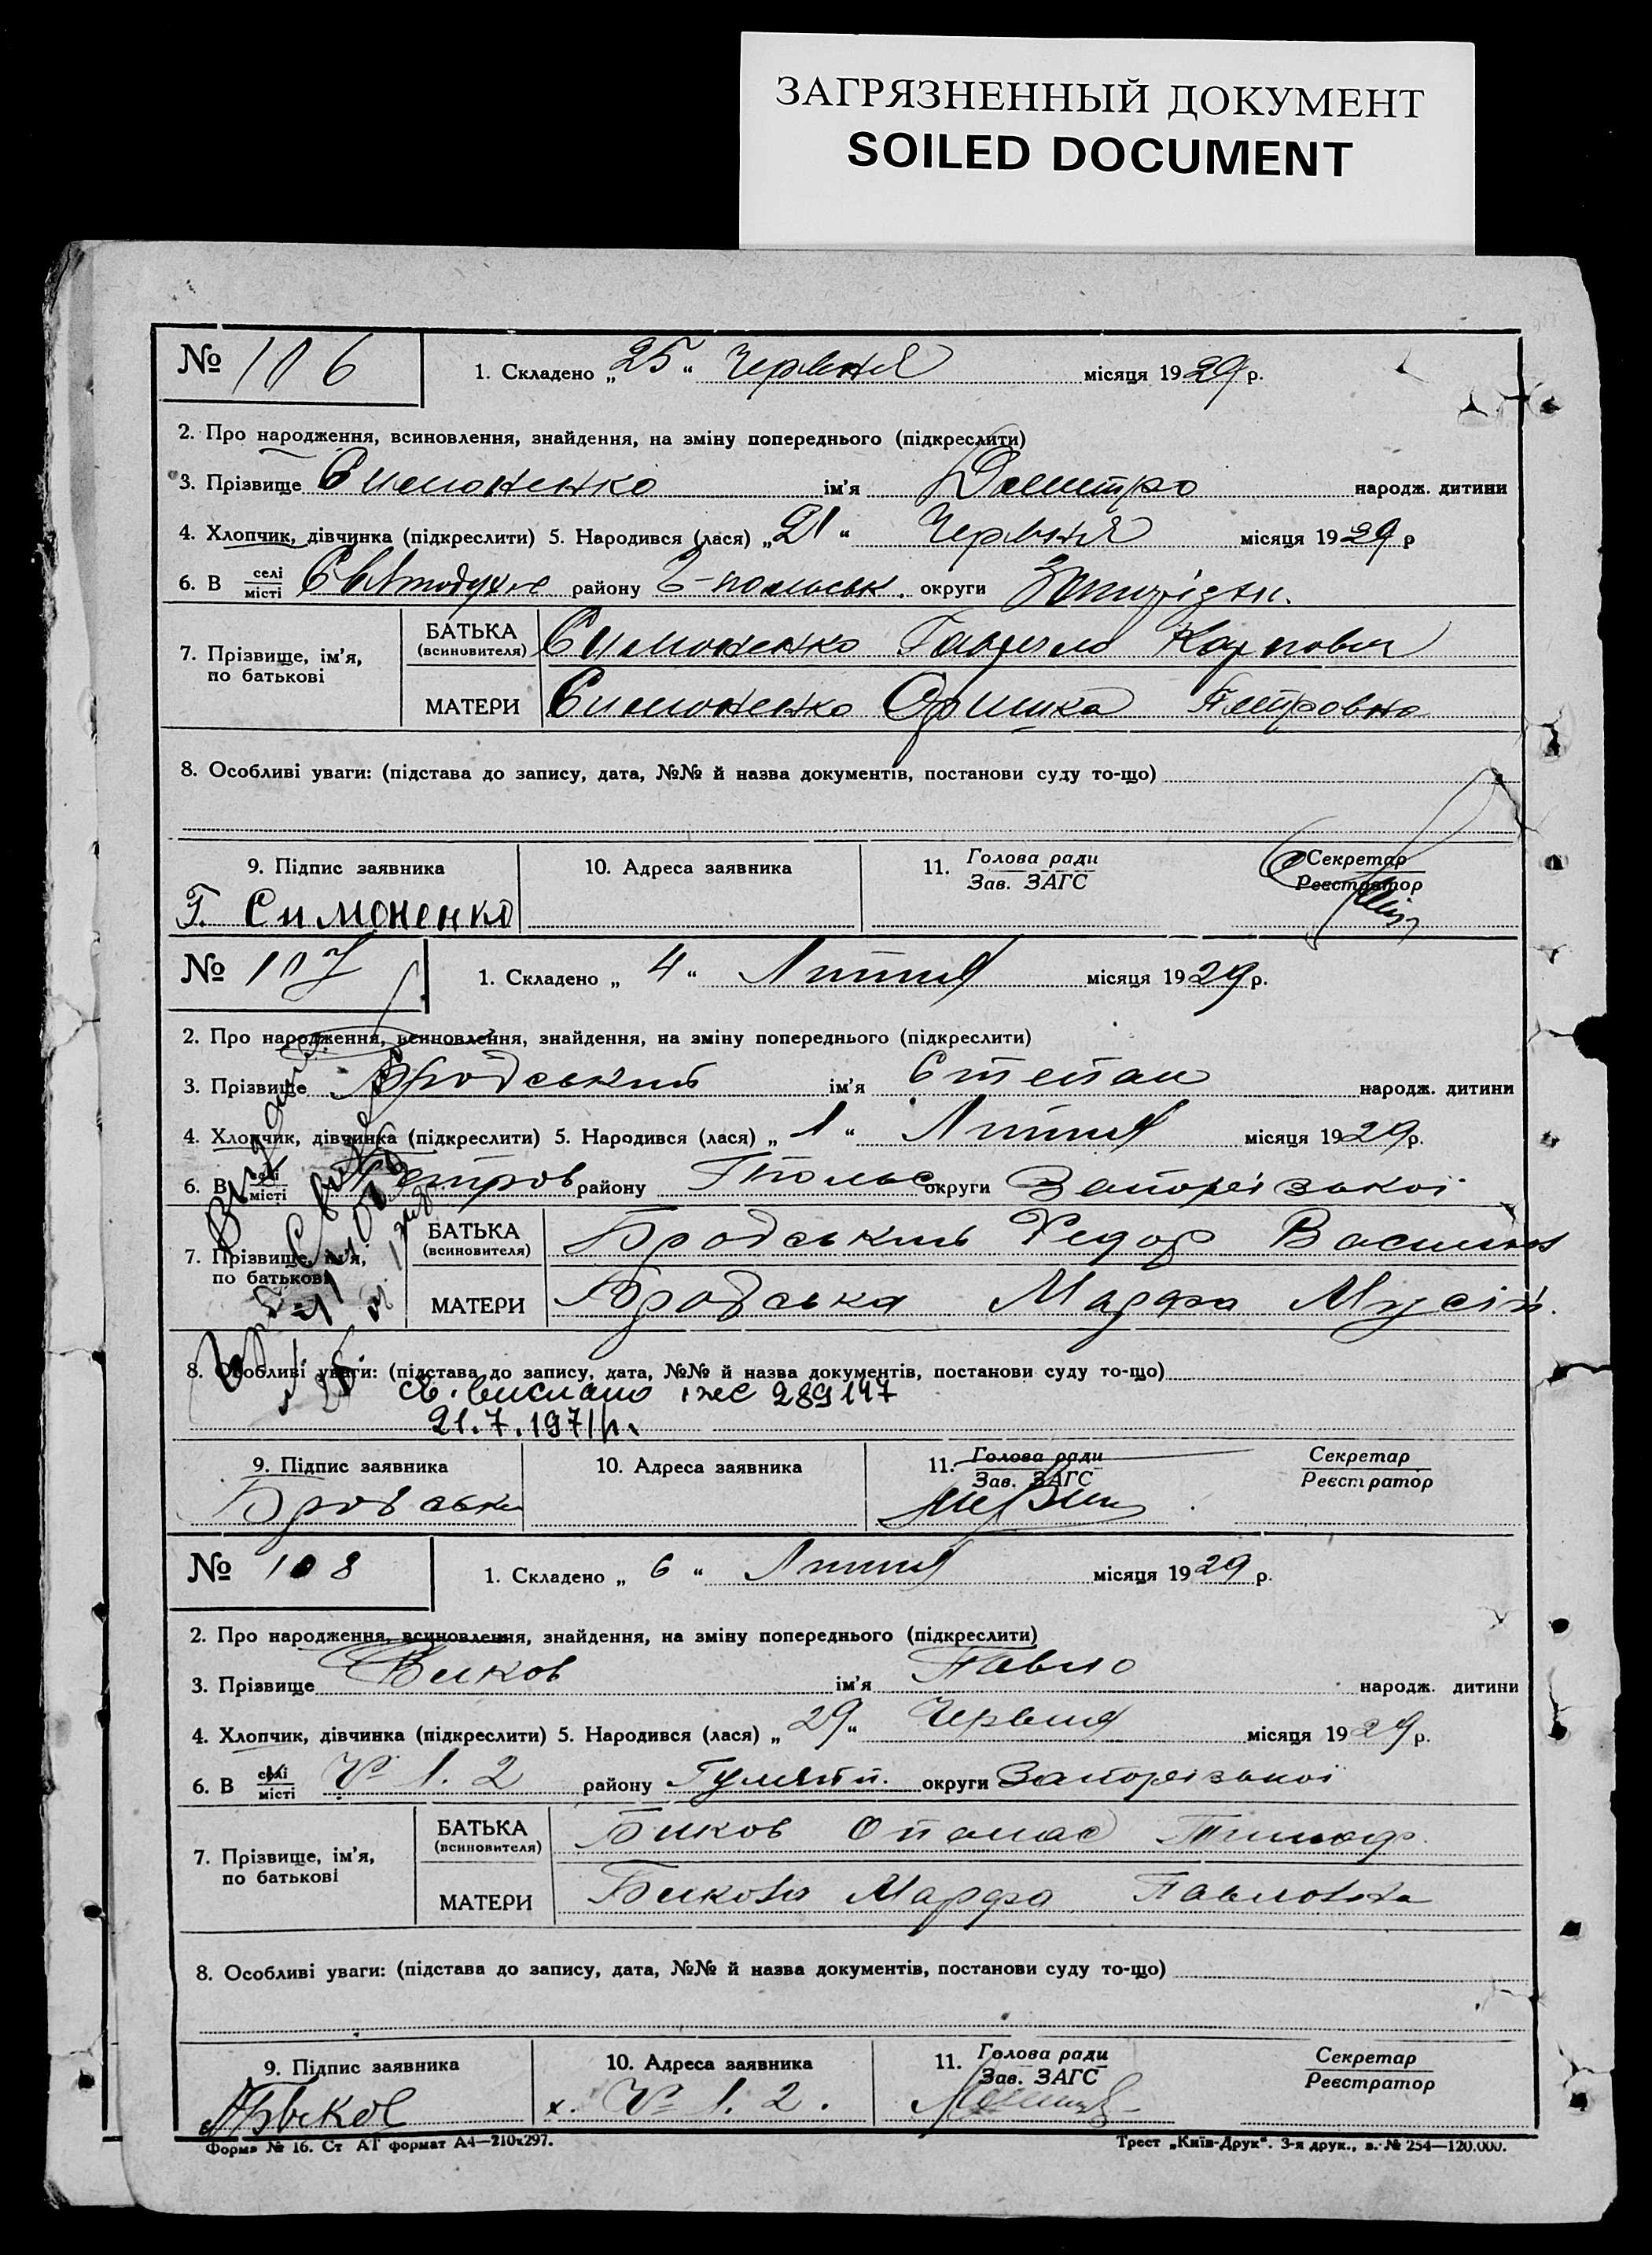 ЗАГРЯЗНЕННЫЙ ДОКУМЕНТ
SOILED DOCUMENT
№ 106 1. Складено „25“ Червня місяця 1929 р.
2. Про народження, всиновлення, знайдення, на зміну попереднього (підкреслити)
3. Прізвище Симоненко ім'я Дмитро народж. дитини
4. Хлопчик, дівчинка (підкреслити) 5. Народився (лася) „21“ Червня місяця 1929 р
6. В селі місті району округи
7. Прізвище, ім'я, по батькові
БАТЬКА (всиновителя) Симоненко Гаврило Карпович
МАТЕРИ Симоненко Оришка Петровна
8. Особливі уваги: (підстава до запису, дата, №№ й назва документів, постанови суду то-що)
9. Підпис заявника 10. Адреса заявника 11. Голова ради Зав. ЗАГС Секретар Реєстратор
Г. Симоненко
№ 107 1. Складено „4“ Липня місяця 1929 р.
2. Про народження, всиновлення, знайдення, на зміну попереднього (підкреслити)
3. Прізвище Бродський ім'я Степан народж. дитини
4. Хлопчик, дівчинка (підкреслити) 5. Народився (лася) „1“ Липня місяця 1929 р.
6. В селі місті Петров району округи Запорізької
7. Прізвище, ім'я, по батькові
БАТЬКА (всиновителя) Бродський Федор
МАТЕРИ Бродська Марфа Мусій.
8. Особливі уваги: (підстава до запису, дата, №№ й назва документів, постанови суду то-що)
св. вислано 289147
21.7.1971р.
9. Підпис заявника 10. Адреса заявника 11. Голова ради Зав. ЗАГС Секретар Реєстратор
№ 108 1. Складено „6“ Липня місяця 1929 р.
2. Про народження, всиновлення, знайдення, на зміну попереднього (підкреслити)
3. Прізвище Биков ім'я Павло народж. дитини
4. Хлопчик, дівчинка (підкреслити) 5. Народився (лася) „29“ Червня місяця 1929 р.
6. В селі місті № 1. 2 району округи Запорізької
7. Прізвище, ім'я, по батькові
БАТЬКА (всиновителя) Биков Опанас Тимоф.
МАТЕРИ Бикова Марфа Павловна
8. Особливі уваги: (підстава до запису, дата, №№ й назва документів, постанови суду то-що)
9. Підпис заявника 10. Адреса заявника 11. Голова ради Зав. ЗАГС Секретар Реєстратор
х. № 1. 2.
Форма № 16. Ст АГ формат А4—210х297. Трест „Київ-Друк“. 3-я друк., з. № 254—120.000.